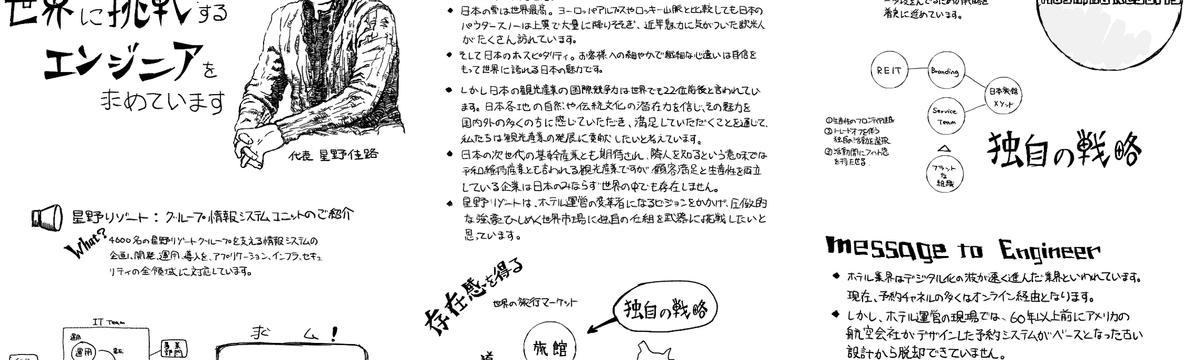 世界に挑戦する
エンジニアを
求めています
代表 星野佳路
星野リゾート：グループ情報システムユニットのご紹介
What?
4600名の星野リゾートグループを支える情報システムの
企画、開発、運用、導入を、アプリケーション、インフラ、セキュ
リティの全領域に対応しています。
IT Team
運用
求 ム！
日本の雪は世界最高。ヨーロッパアルプスやロッキー山脈と比較しても日本の
パウダースノーは上質で大量に降りそそぎ、近年魅力に気がついた欧米人
がたくさん訪れています。
そして日本のホスピタリティ。お客様への細やかで繊細な心遣いは自信を
もって世界に誇れる日本の魅力です。
しかし日本の観光産業の国際競争力は世界でも22位前後と言われてい
ます。日本各地の自然や伝統文化の潜在力を信じ、その魅力を
国内外の多くの方に感じていただき、満足していただくことを通じて、
私たちは観光産業の発展に貢献したいと考えています。
日本の次世代の基幹産業とも期待され、隣人を知るという意味では
平和維持産業とも言われる観光産業ですが顧客満足と生産性を両立
している企業は日本のみならず世界の中でも存在しません。
星野リゾートは、ホテル運営の変革者になるビジョンをかかげ、圧倒的
な強豪ひしめく世界市場に独自の仕組を武器に挑戦したいと
思っています。
存在感を得る
世界の旅行マーケット
独自の戦略
旅館
着実に進めています。
REIT
Branding
日本旅館
メソッド
Service
Team
フラット
な
組織
①生産性のフロンティア達成
②トレードオフを伴う
独自の活動を選択
独自の戦略
message to Engineer
ホテル業界はデジタル化の波が速く進んだ業界といわれています。
現在、予約チャネルの多くはオンライン経由となります。
しかし、ホテル運営の現場では、60年以上前にアメリカの
航空会社がデザインした予約システムがベースとなった古い
設計から脱却できていません。